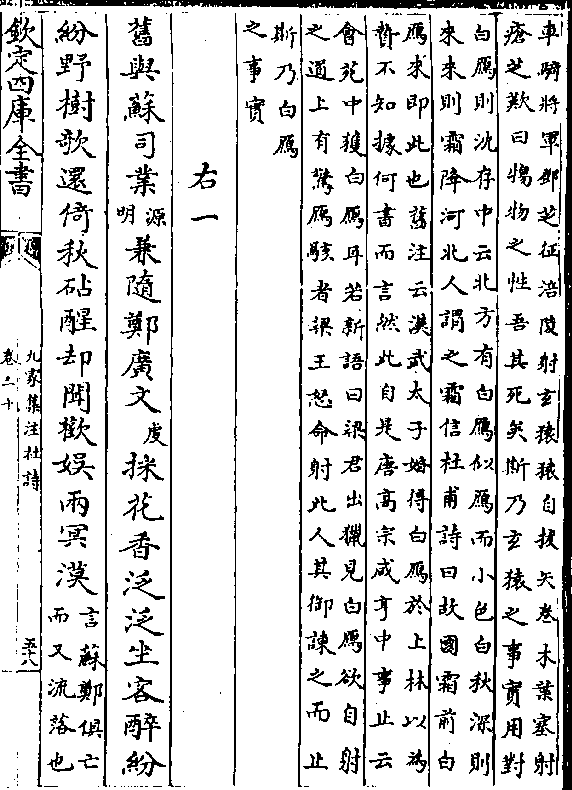 車騎將軍鄧芝征涪陵射玄猿猿自拔矢卷木葉塞射
瘡芝歎曰傷物之性吾其死矣斯乃玄猿之事實用對
白鴈則沈存中云北方有白鴈似鴈而小色白秋深則
來來則霜降河北人謂之霜信杜甫詩曰故國霜前白
鴈來即此也舊注云漢武太子婚得白鴈於上林以為
贄不知據何書而言然此自是唐高宗咸亨中事止云
會苑中獲白鴈耳若新語曰梁君出獵見白鴈欲自射
之道上有驚鴈駭者梁王怒命射此人其御諫之而止
斯乃白鴈
之事實
右一
舊與蘇司業源明兼隨鄭廣文虔採花香泛泛坐客醉紛
紛野樹歌還倚秋砧醒却聞歡娛兩冥漠言蘇鄭俱亡而又流落也
欽定四庫全書
九家集注杜詩
卷二十
五十八